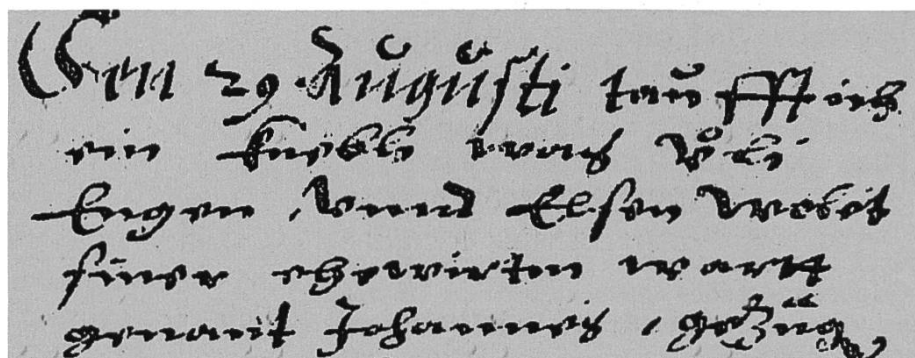 Den 29 Augusti taufft ich
ein knebli was Uli
Engen, vnnd Elsen
siner ehewirten wartt
genant Johannes, gezüg,